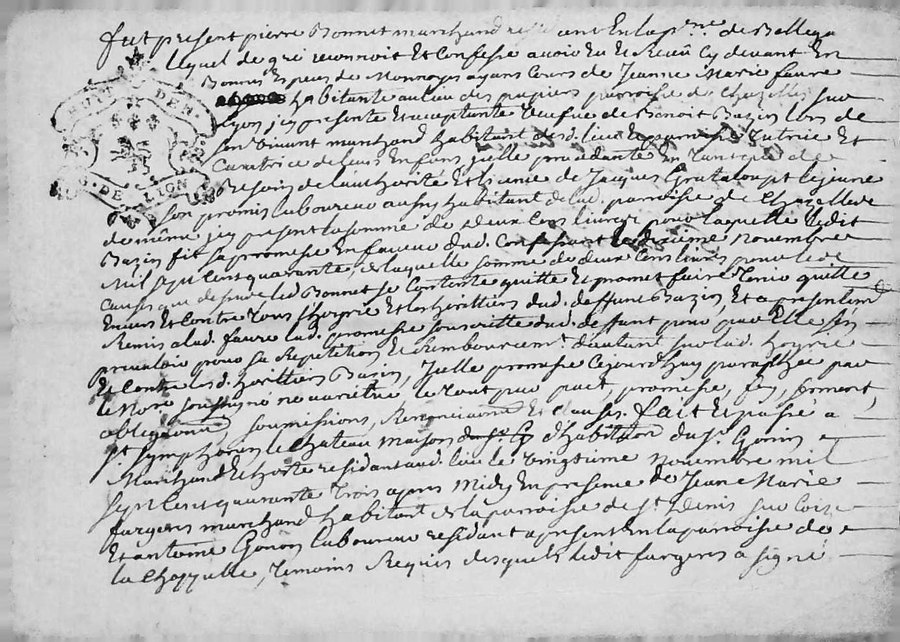 fut present pierre Bonnet marchand residant En la p.sse de Bellega
lequel de gré reconnoit Et Confesse avoir Eu Et Receu Cy devant En
Bonnes Especes de Monnoyes ayans Cours de Jeanne Marie faure
habitante au lieu des papiers parroisse de Chazelles sur
Lyon icy presente Et acceptante veufve de Benoit Bazin lors de
son vivant marchand habitant dud. lieu Et parroisse Tutrice Et
Curatrice de leurs Enfans qu'elle procedante En Tant que de
Besoin de l'authorité Et licence de Jacques Grataloup le jeune
son promis laboureur aussy habitant de lad. parroisse de Chazelle de
de même icy present la somme de deux Cens livres pour laquelle ledit
Bazin fit sa promesse En faveur dud. Confessant le dixieme Novembre
mil sept Cens quarante, de laquelle somme de deux Cens livres pour le de
causes que dessus led Bonnet se Contente quitte Et promet faire Tenir quitte
Envers Et Contre Tous l'hoyrie Et les heritiers dud. deffunt Bazin, Et a presentem.t
Remis a lad. faure lad. promesse souscritte dud. deffunt pour par Elle s'en
prevaloir pour sa Repetition Et Rembourcem.t d'autant sur lad. hoyrie
Et Contre lesd. heritiers Bazin, Jcelle promesse Cejourd'huy paraphee par
le No.re soussigné ne varietur le Tout par pact, promesse, foy, serment,
obligations, soumissions, Renonciations Et Clauses. fait Et passé a
S.t Symphorien le Chateau maison d'habitation du S.r Gonin
Marchand Et hoste residant aud. lieu le vingtieme Novembre mil
sept Cens quarante Trois apres Midy En presence de Jean Marie
fargere marchand habitant de la parroisse de S.t Denis sur Coize
Et antoine Gonon laboureur residant a present En la parroisse de
la Chappelle, Temoins Requis desquels ledit fargere a signé
DE LION